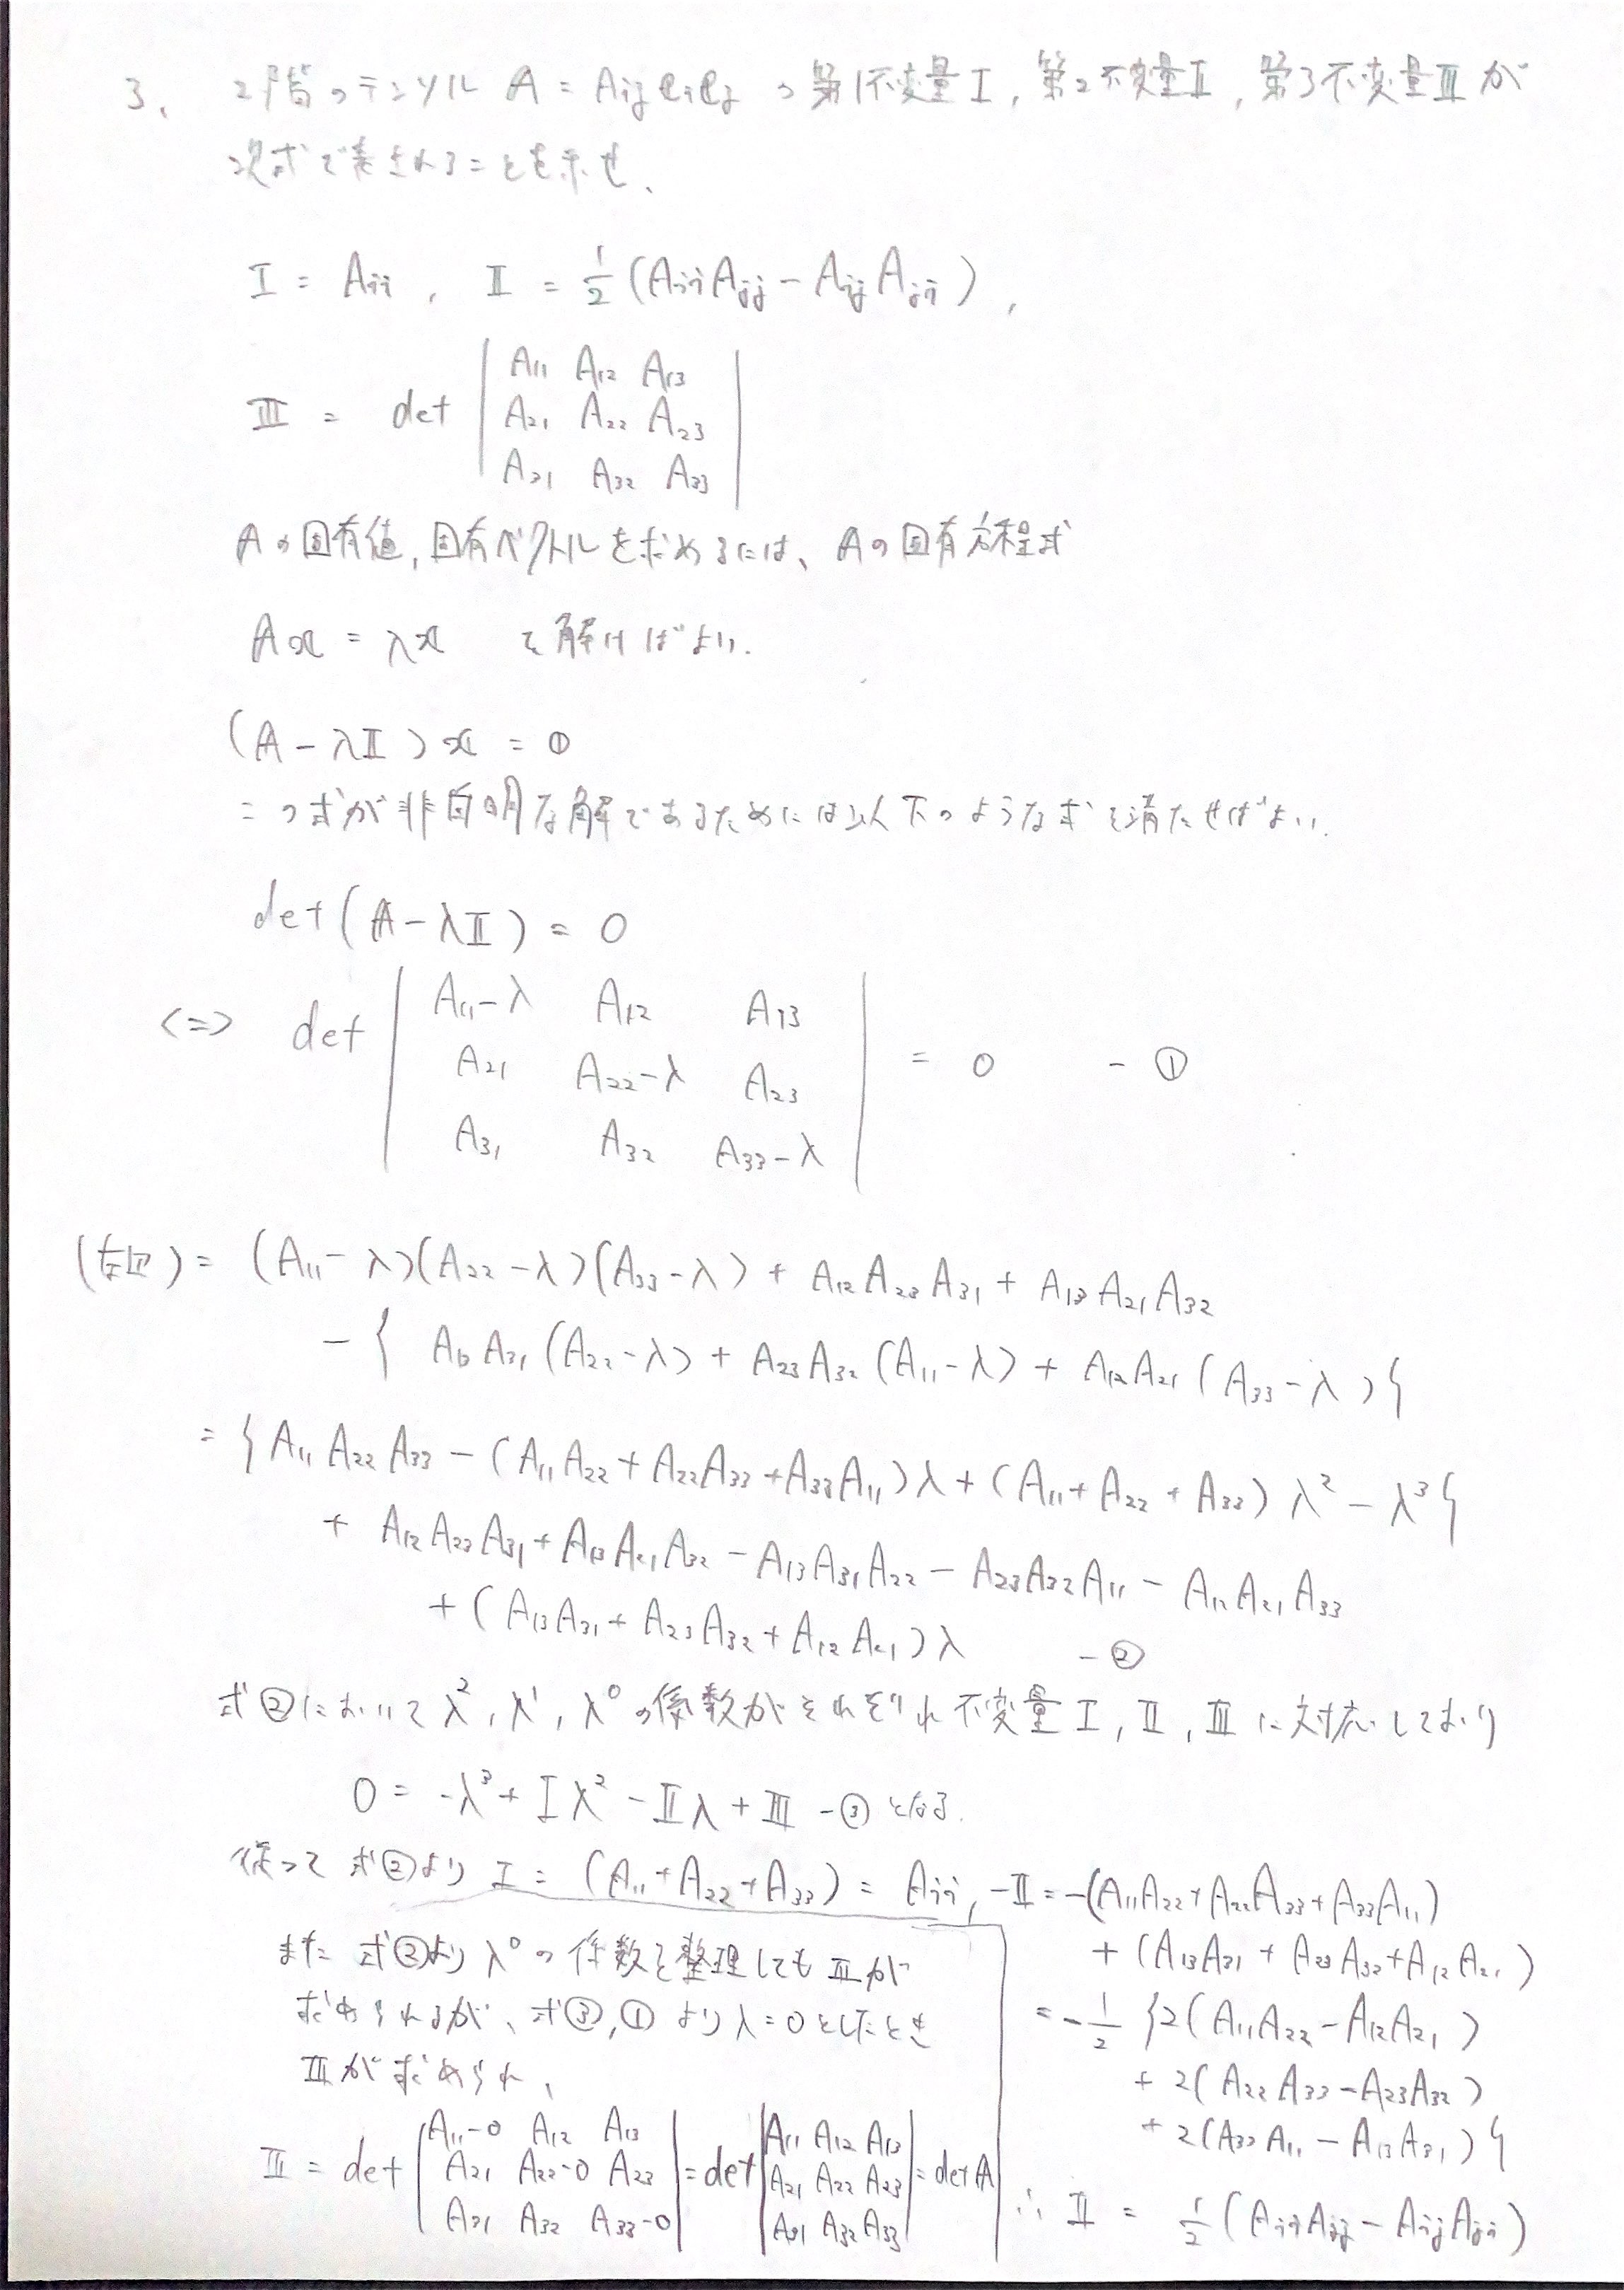 3. 2階のテンソル A = Aij ei ej の 第1不変量 I, 第2不変量 II, 第3不変量 III が
次式で表されることを示せ、
I = Aii , II = 1/2 (Aii Ajj - Aij Aji) ,
III = det | A11 A12 A13 |
| A21 A22 A23 |
| A31 A32 A33 |
Aの固有値, 固有ベクトルを求めるには、Aの固有方程式
Ax = λx を解けばよい.
(A - λI) x = 0
この式が非自明な解であるためには以下のような式を満たせばよい.
det (A - λI) = 0
<=> det | A11-λ A12 A13 |
| A21 A22-λ A23 | = 0 - ①
| A31 A32 A33-λ |
(左辺) = (A11 - λ)(A22 - λ)(A33 - λ) + A12 A23 A31 + A13 A21 A32
- { A13 A31 (A22 - λ) + A23 A32 (A11 - λ) + A12 A21 (A33 - λ) }
= { A11 A22 A33 - (A11 A22 + A22 A33 + A33 A11) λ + (A11 + A22 + A33) λ² - λ³ }
+ A12 A23 A31 + A13 A21 A32 - A13 A31 A22 - A23 A32 A11 - A12 A21 A33
+ (A13 A31 + A23 A32 + A12 A21) λ - ②
式②において λ², λ¹, λ⁰ の係数がそれぞれ不変量 I, II, III に対応しており
0 = -λ³ + Iλ² - IIλ + III - ③ となる.
従って 式②より I = (A11 + A22 + A33) = Aii , -II = -(A11 A22 + A22 A33 + A33 A11)
+ (A13 A31 + A23 A32 + A12 A21)
= -1/2 {2(A11 A22 - A12 A21)
+ 2(A22 A33 - A23 A32)
+ 2(A33 A11 - A13 A31) }
∴ II = 1/2 (Aii Ajj - Aij Aji)
また 式②より λ⁰ の係数を整理しても III が
求められるが、式③,①より λ=0 としたとき
III が求められ、
III = det | A11-0 A12 A13 | = det | A11 A12 A13 |
| A21 A22-0 A23 | | A21 A22 A23 | = det A
| A31 A32 A33-0 | | A31 A32 A33 |